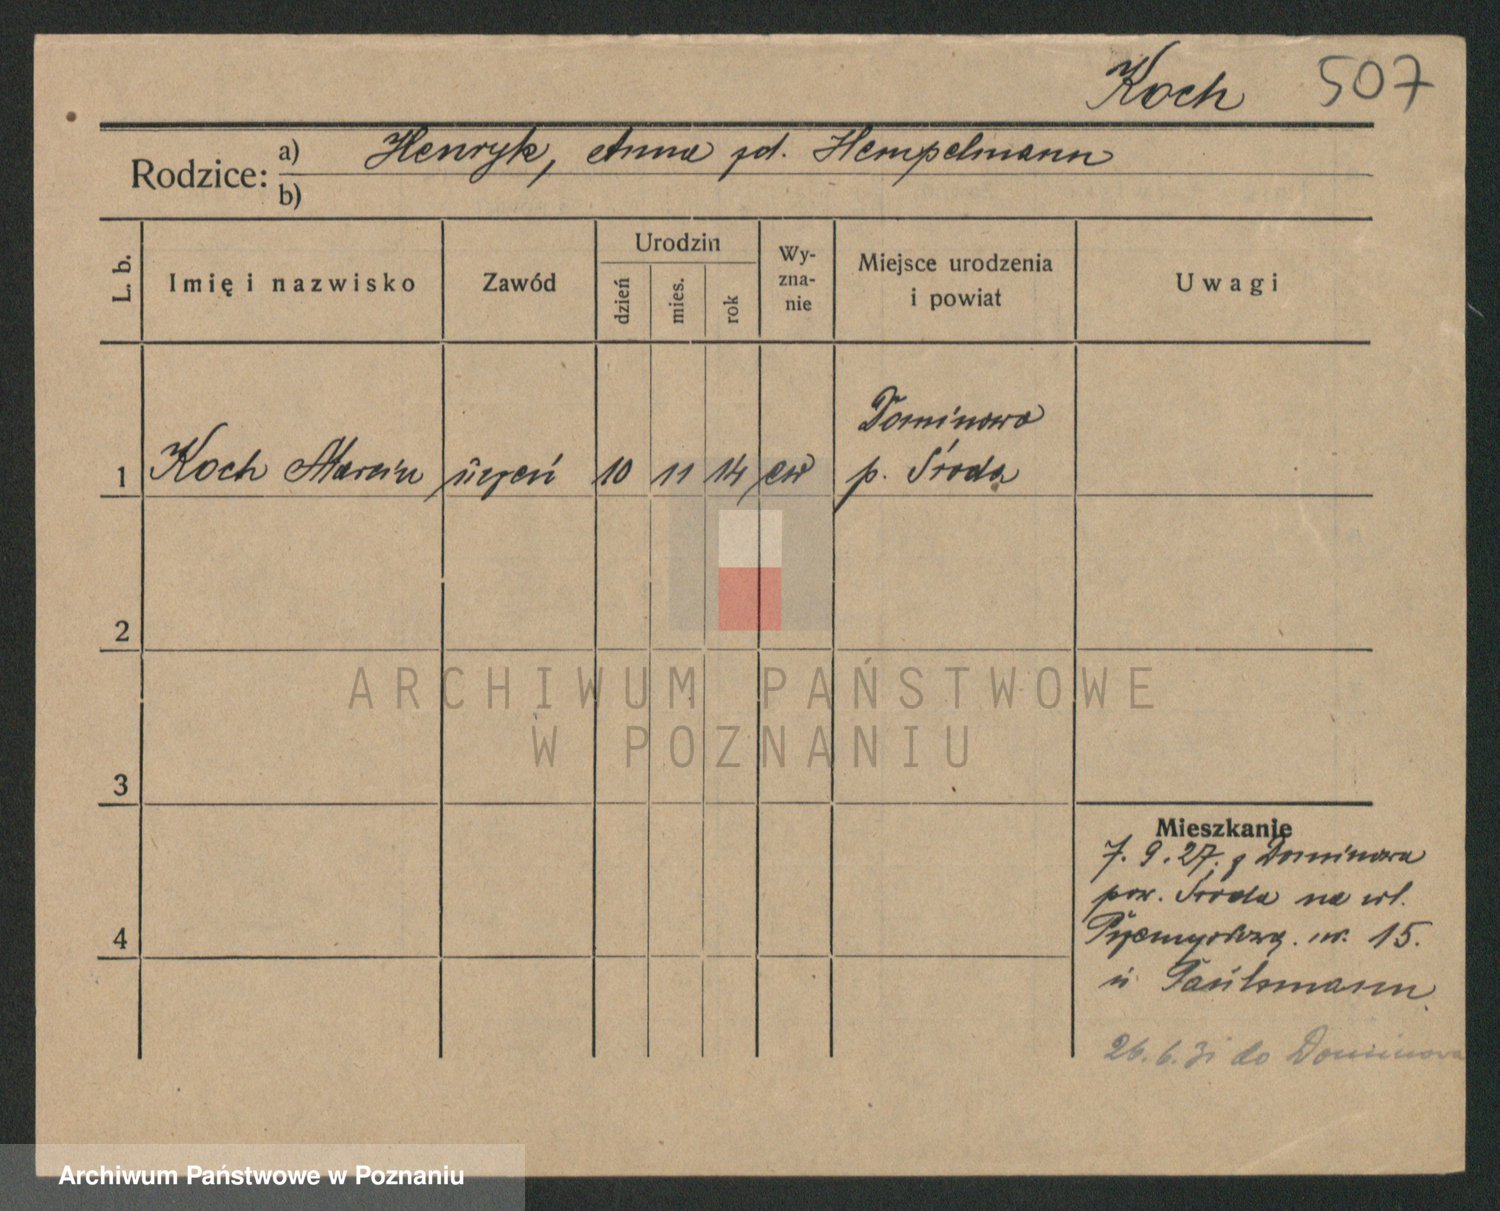 Koch 507
Rodzice: a) Henryk, Anna zd. Hempelmann
b)
L. b. Imię i nazwisko Zawód Urodzin dzień mies. rok Wy-zna-nie Miejsce urodzenia i powiat Uwagi
Dominowo
1 Koch Marcin uczeń 10 11 14 ew p. Środa
2
ARCHIWUM PAŃSTWOWE
W POZNANIU
3
Mieszkanie
7. 9. 27. z Dominowa
pow. Środa na ul.
4 nr. 15.
u Paulsmann
26. 6. 31 do Dominowa
Archiwum Państwowe w Poznaniu